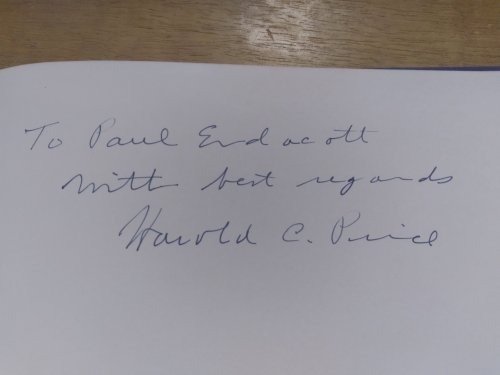 To Paul Endacott
with best regards
Harold C. Price